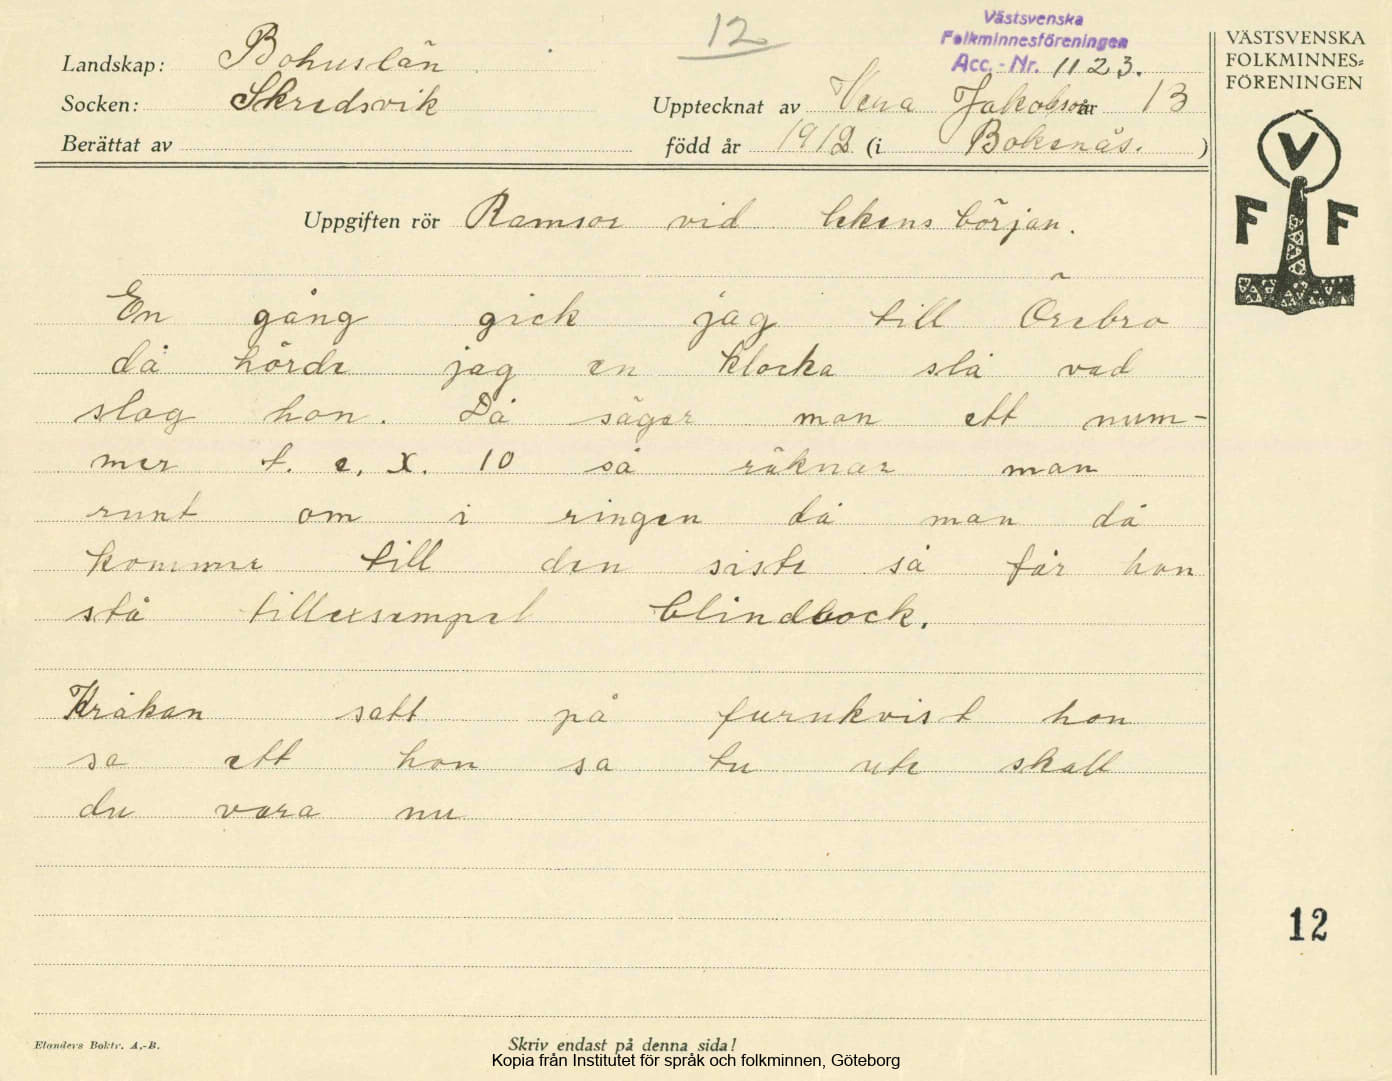 12
Västsvenska
Folkminnesföreningen
Acc.-Nr. 1123.
VÄSTSVENSKA
FOLKMINNES=
FÖRENINGEN
V
F F
Landskap: Bohuslän
Socken: Skredsvik
Upptecknat av Vena Jakobson år 13
Berättat av
född år 1912 (i Bokenäs. )
Uppgiften rör Ramsor vid lekens början.
En gång gick jag till Örebro
då hörde jag en klocka slå vad
slog hon. Då säger man ett num-
mer t. e, x. 10 så räknar man
runt om i ringen då man då
komme till den siste så får hon
stå tillexsempel blindbock.
Kråkan satt på furukvist hon
sa ett hon sa tu ute skall
du vara nu
12
Elanders Boktr. A.-B.
Skriv endast på denna sida!
Kopia från Institutet för språk och folkminnen, Göteborg